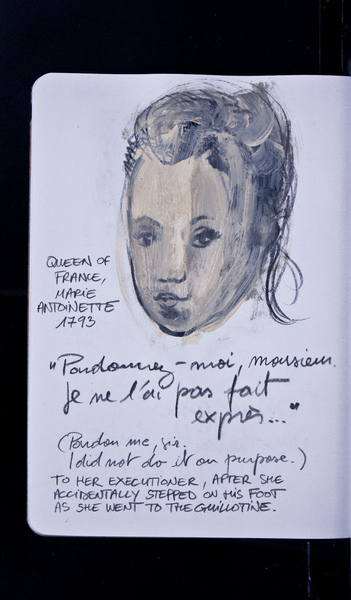 QUEEN OF
FRANCE,
MARIE
ANTOINETTE
1793
"Pardonnez-moi, monsieur.
Je ne l'ai pas fait
exprès..."
(Pardon me, sir.
I did not do it on purpose.)
TO HER EXECUTIONER, AFTER SHE
ACCIDENTALLY STEPPED ON HIS FOOT
AS SHE WENT TO THE GUILLOTINE.